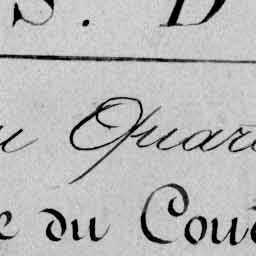 S. D
u Quar
e du Cou